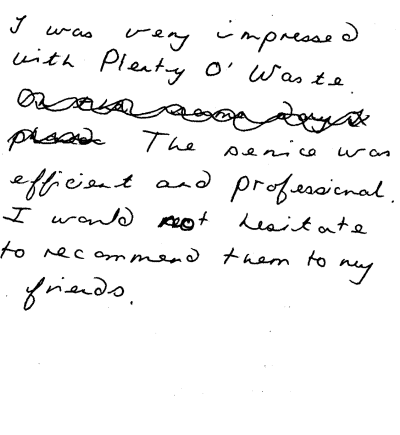 I was very impressed
with Plenty O' Waste.
The service was
efficient and professional.
I would not hesitate
to recommend them to my
friends.